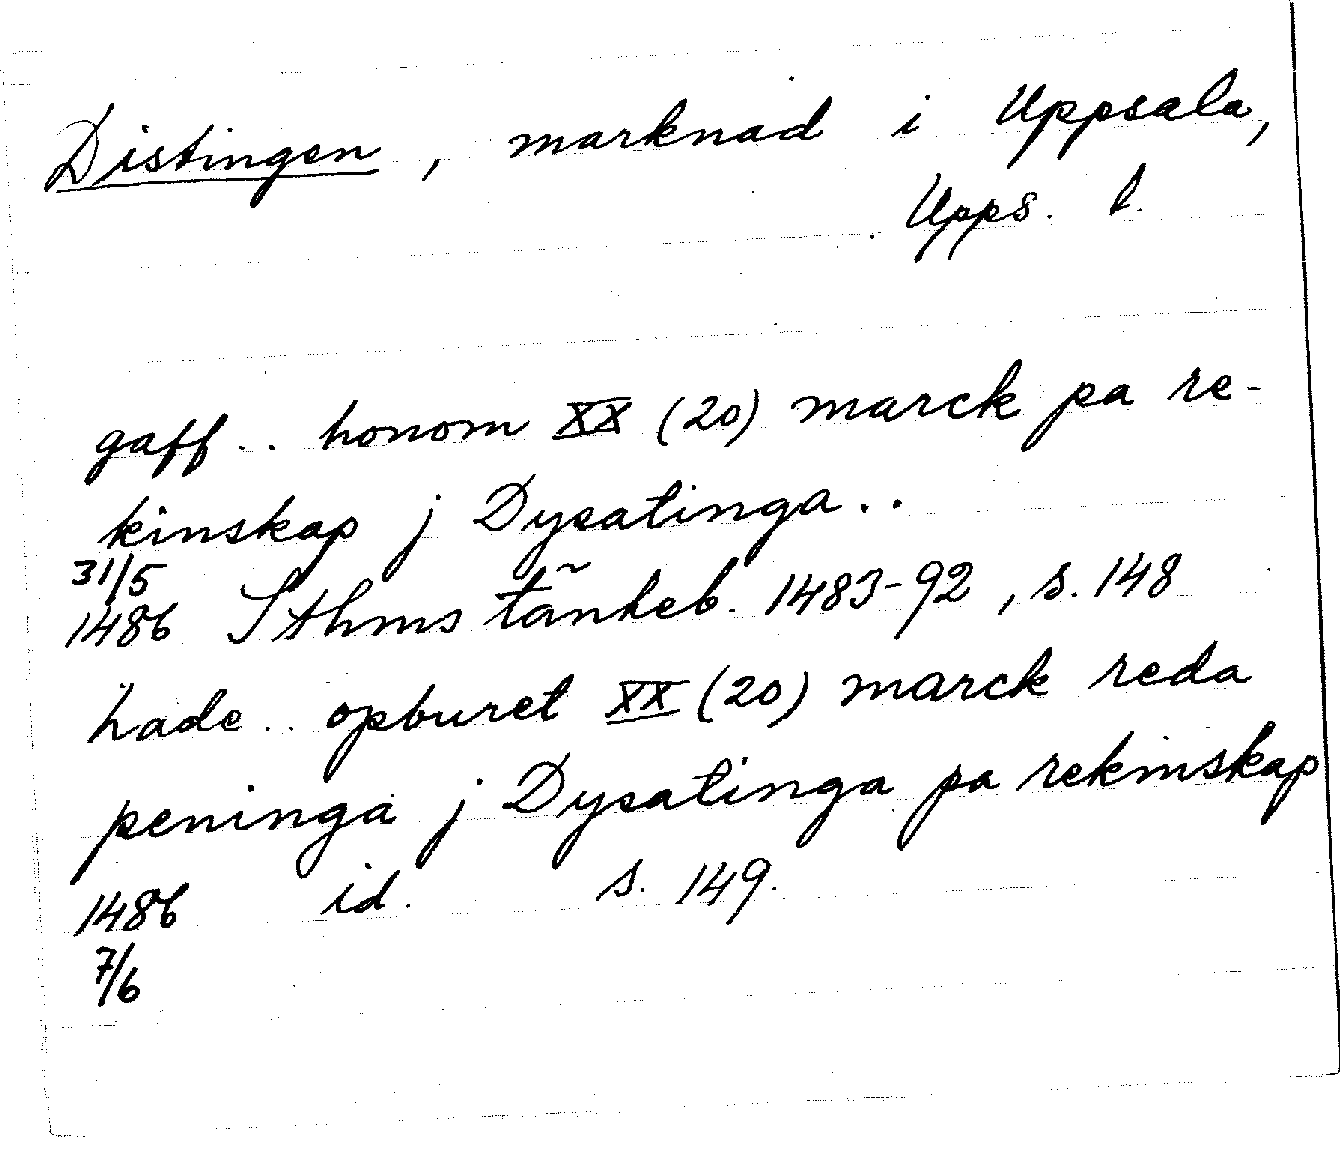 Distingen, marknad i Uppsala,
Upps. l.
gaff .. honom XX (20) marck pa re-
kinskap j Dysatinga ..
31/5
1486 Sthms tänkeb. 1483-92, s. 148
hade .. opburet XX (20) marck reda
peninga j Dysatinga pa rekinskap
1486 id. s. 149.
7/6